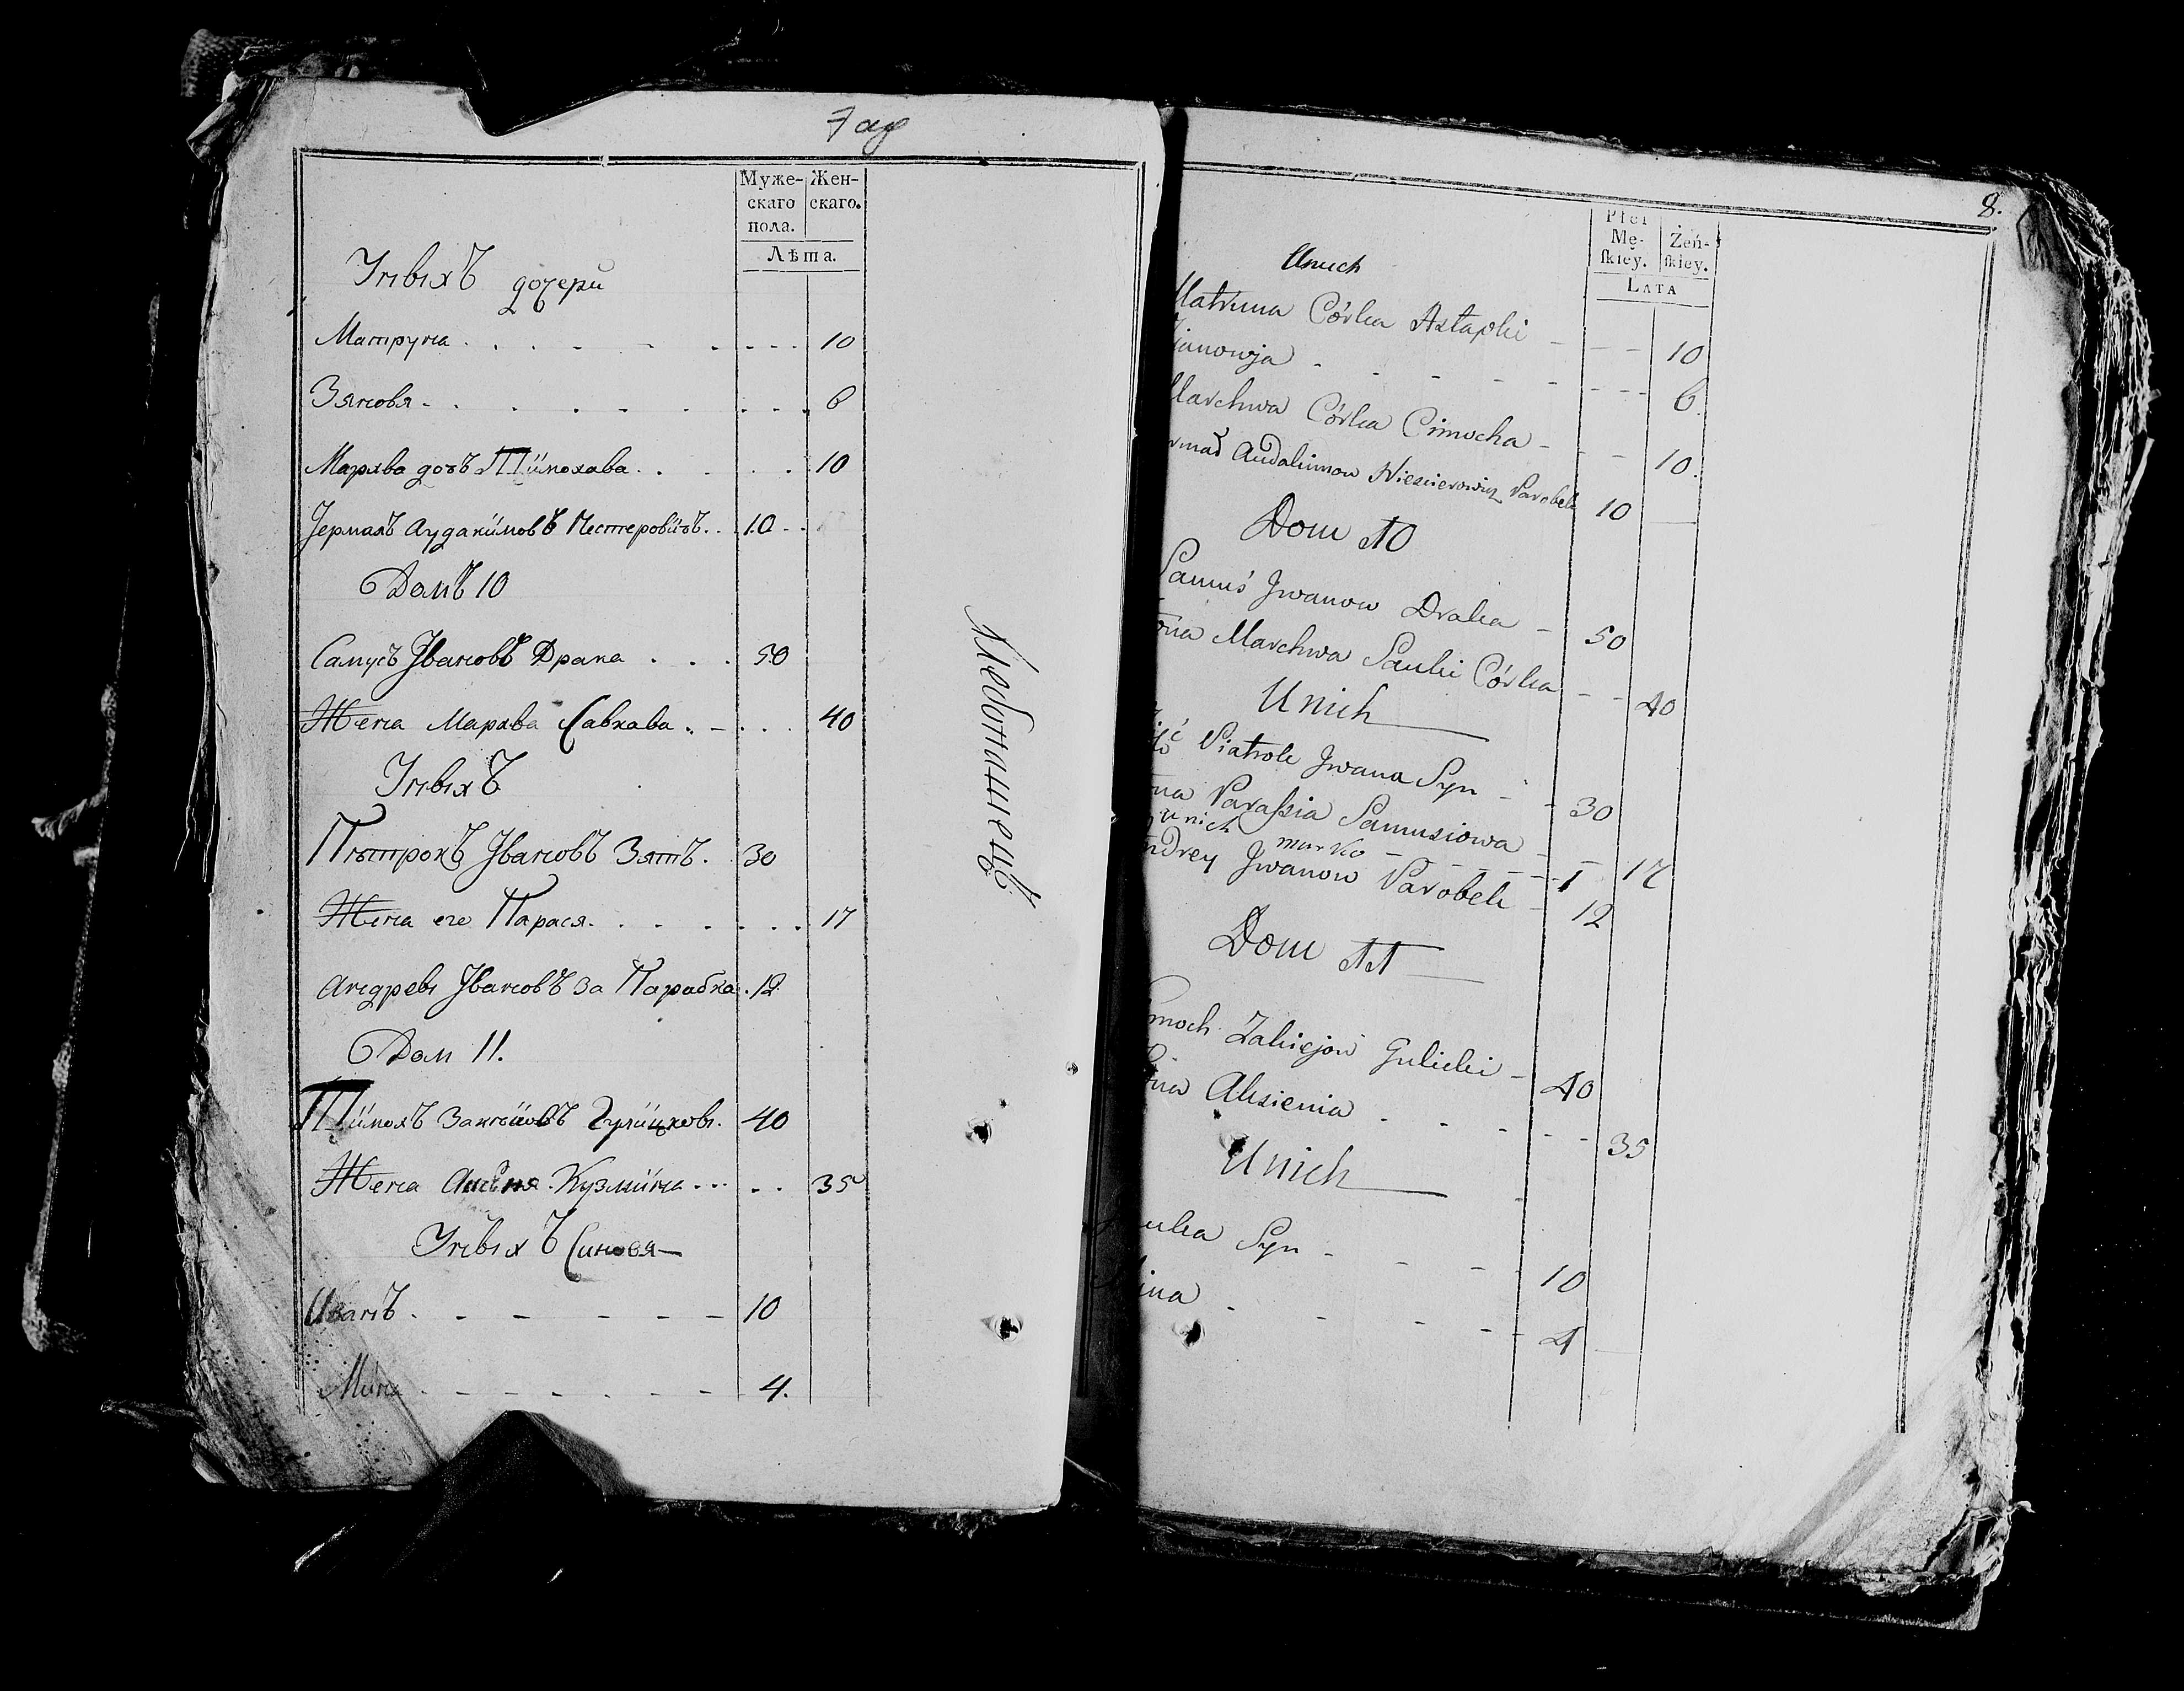 7 об
Муже-скаго пола.
Жен-скаго.
Лѣта.
Унвıхъ дочери
Матруна 10
Зяновя 6
Мархва дочъ Тимохава 10
Јермакъ Аудакимовъ Нестеровичъ 10
Домъ 10
Самусъ Јвановъ Драка 50
Жена Мархва Савкава 40
Унвıхъ
Пятрокъ Јвановъ Зятъ. 30
Жена его Парася 17
Андревı Јвановъ за Парабка 12
Дом 11.
Тимохъ Јвановъ 40
Жена Кузмина 35
Унвıхъ Синовя
Иванъ 10
Мина 4.
8.
Płci Mę-ſkiey.
Żeń-ſkiey.
LATA
Unich
Matruna Córka Astapki 10
Zianowja 6.
Marchwa Córka Cimocha 10.
Audakimow Niescierowicz Parobek 10
Dom 10
Samuś Jwanow Draka 50
Żona Marchwa Sauki Córka 40
Unich
Piatrok Jwana Syn 30
Parassia Samusiowa 17
u nich murko 1
Andrey Jwanow Parobek 12
Dom 11
Cimoch Zakiejow Gulicki 40
Żona Aksienia 35
Unich
Syn 10
Mina 4